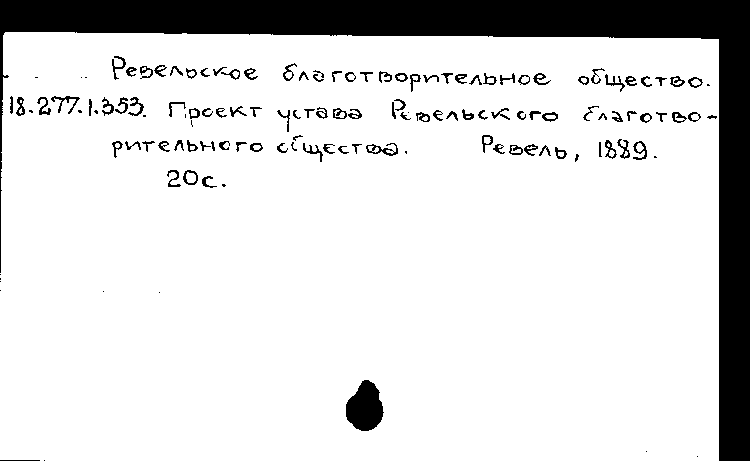 Ревельское благотворительное общество.
18.277.1.353. Проект устава Ревельского благотво-
рительного общества. Ревель, 1889.
20с.